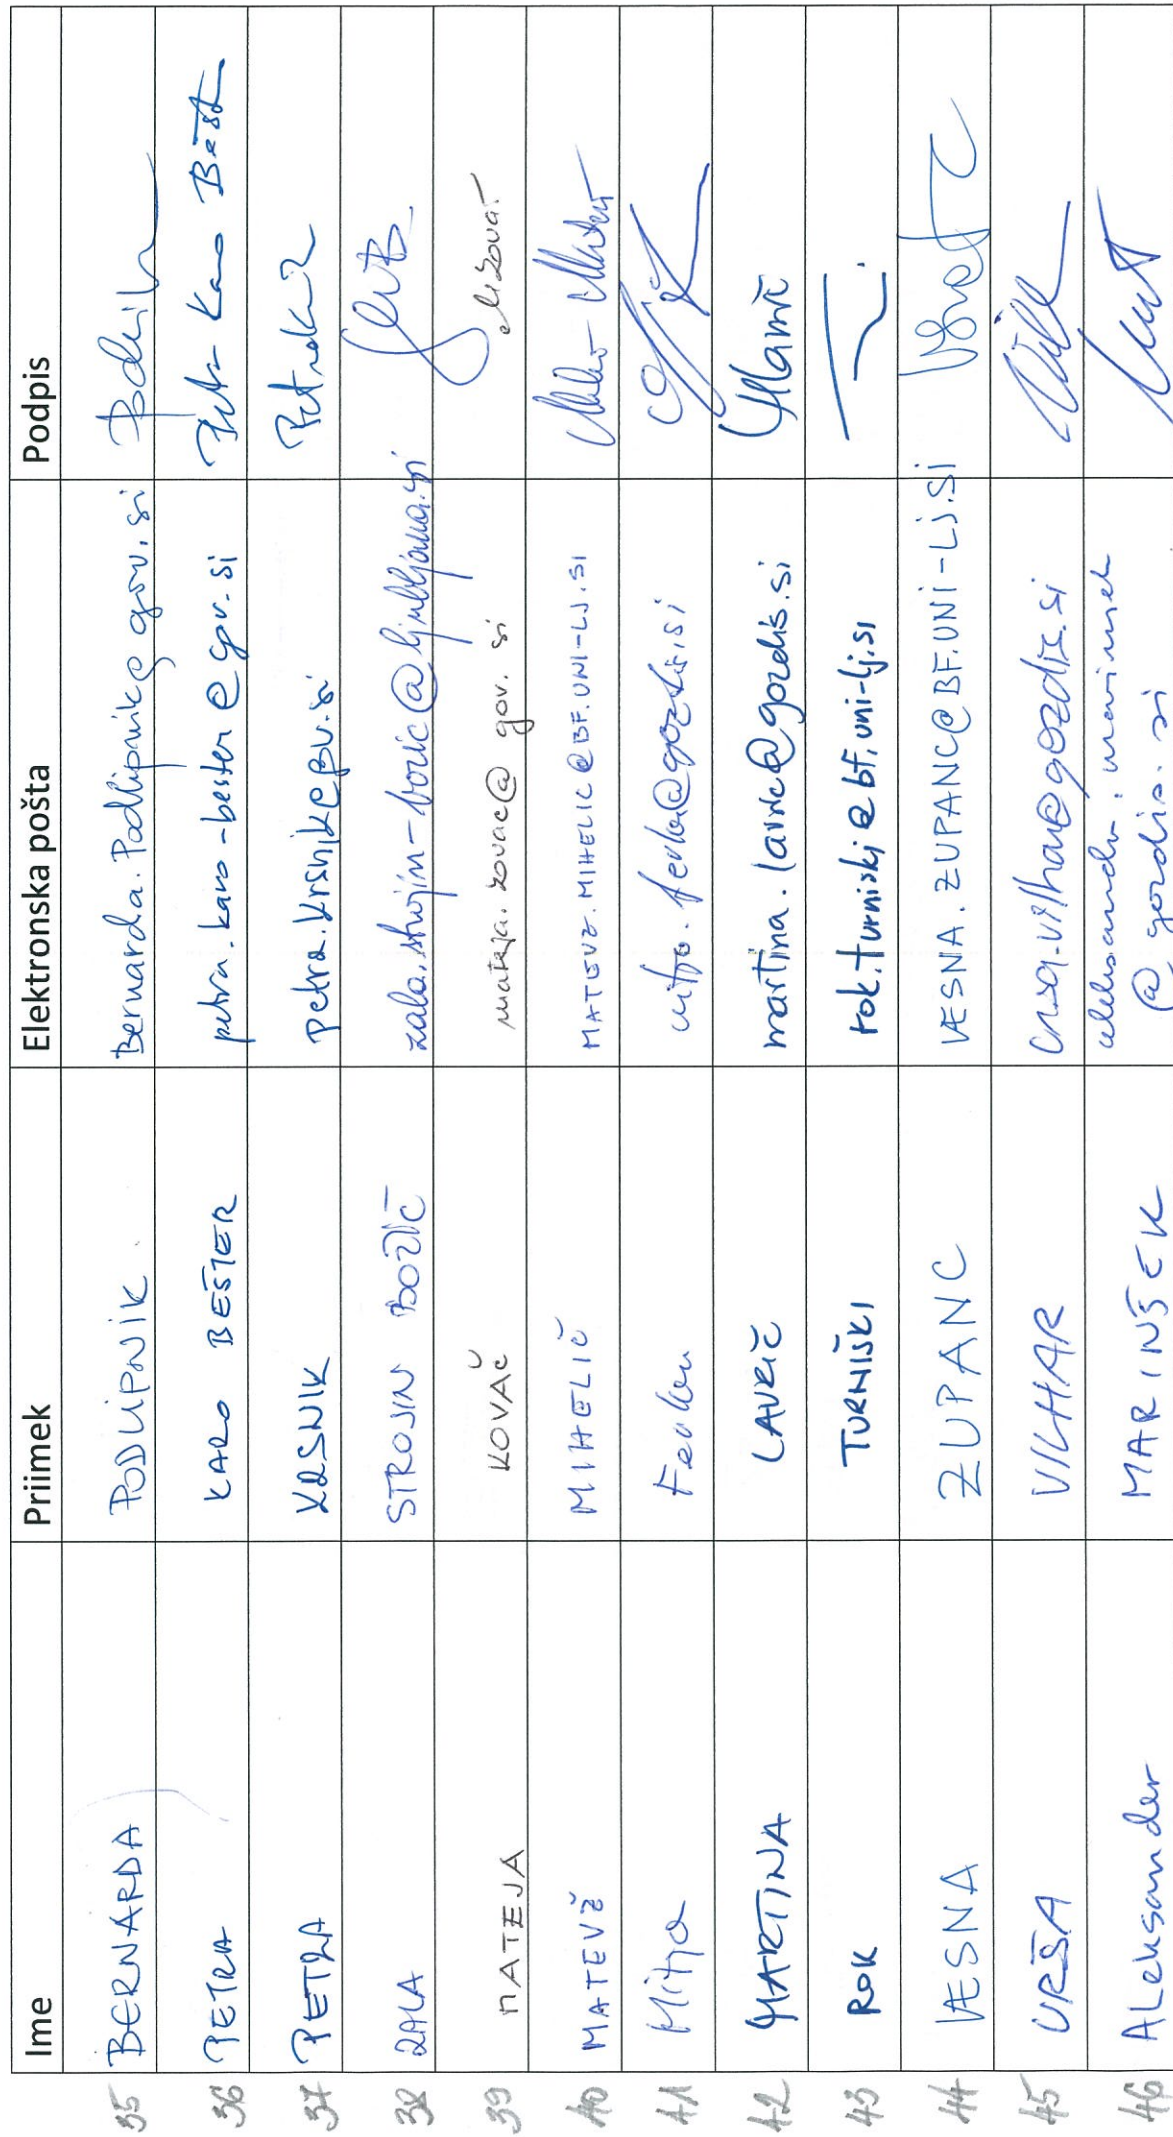 Ime Priimek Elektronska pošta Podpis
35 BERNARDA PODLIPNIK Bernarda.Podlipnik@gov.si
36 PETRA KARO BEŠTER petra.karo-bester@gov.si Petra Karo Bešt
37 PETRA KRSNIK petra.krsnik@gov.si
38 ZALA STROJIN BOŽIČ zala.strojin-bozic@ljubljana.si
39 MATEJA KOVAČ mateja.kovac@gov.si MKovač
40 MATEVŽ MIHELIČ MATEVZ.MIHELIC@BF.UNI-LJ.SI
41 Mitja Ferlan mitja.ferlan@gozdis.si
42 MARTINA LAVRIČ martina.lavric@gozdis.si
43 ROK TURNIŠKI rok.turniski@bf.uni-lj.si
44 VESNA ZUPANC VESNA.ZUPANC@BF.UNI-LJ.SI
45 URŠA VILHAR ursa.vilhar@gozdis.si
46 Aleksander MARINŠEK aleksander.marinsek
@gozdis.si